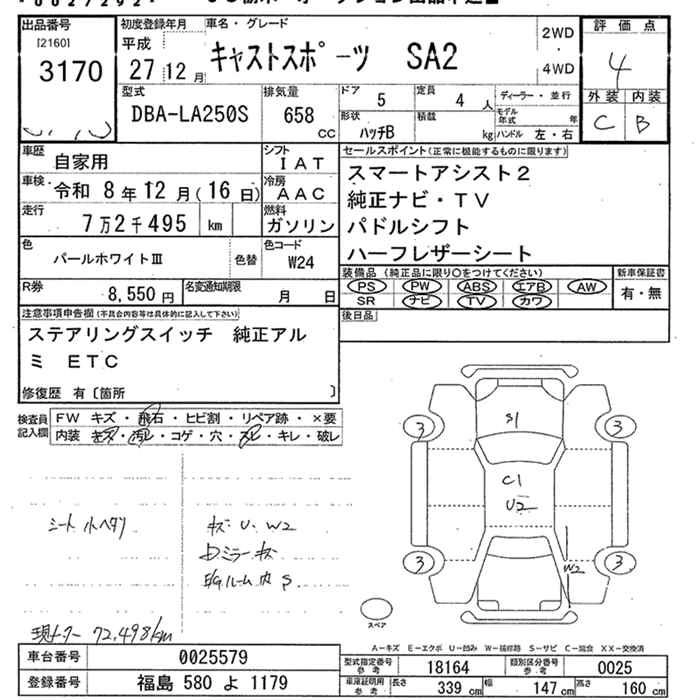 出品番号
[2160]
3170
初度登録年月
平成
27 12 月
車名・グレード
キャストスポーツ SA2
2WD
・
4WD
評価点
4
外装 内装
C B
型式
DBA-LA250S
排気量
658
cc
ドア
5
定員
4 人
ディーラー・並行
モデル年式 年
形状
ハッチB
積載
kg
ハンドル 左・右
車歴
自家用
シフト
IAT
車検
令和 8年 12月(16日)
冷房
AAC
走行
7万2千495 km
燃料
ガソリン
色
パールホワイトⅢ
色替
色コード
W24
R券
8,550 円
名変通知期限
月 日
セールスポイント(正常に機能するものに限ります)
スマートアシスト2
純正ナビ・TV
パドルシフト
ハーフレザーシート
装備品(純正品に限り○をつけてください)
PS PW ABS エアB AW
SR ナビ TV カワ
新車保証書
有・無
後日品
注意事項申告欄(不具合内容等は具体的に記入して下さい)
ステアリングスイッチ 純正アル
ミ ETC
修復歴 有〔箇所 〕
検査員
記入欄
FW キズ・飛石・ヒビ割・リペア跡・×要
内装 キズ・汚レ・コゲ・穴・スレ・キレ・破レ
シート 小ヘタリ
キズ U. W2
ミラー キズ
ルーム内 S
現メーター 72,498km
S1
C1
U2
W2
3
3
3
3
スペア
A－キズ E－エクボ U－凹み W－補修跡 S－サビ C－腐食 XX－交換済
車台番号 0025579
登録番号 福島 580 よ 1179
型式指定番号
参考
18164
類別区分番号
参考
0025
車庫証明用
参考
長さ 339 cm 幅 147 cm 高さ 160 cm